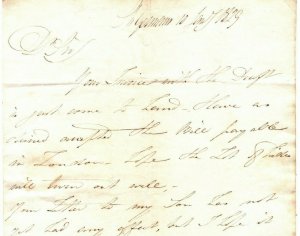 Dr Sir
Your Invoice with the Draft
is just come to hand - Have as
desired accepted the Bill payable
in London - hope the Lot of
will turn out well -
Your letter to my Son has not
yet had any effect, but I hope it